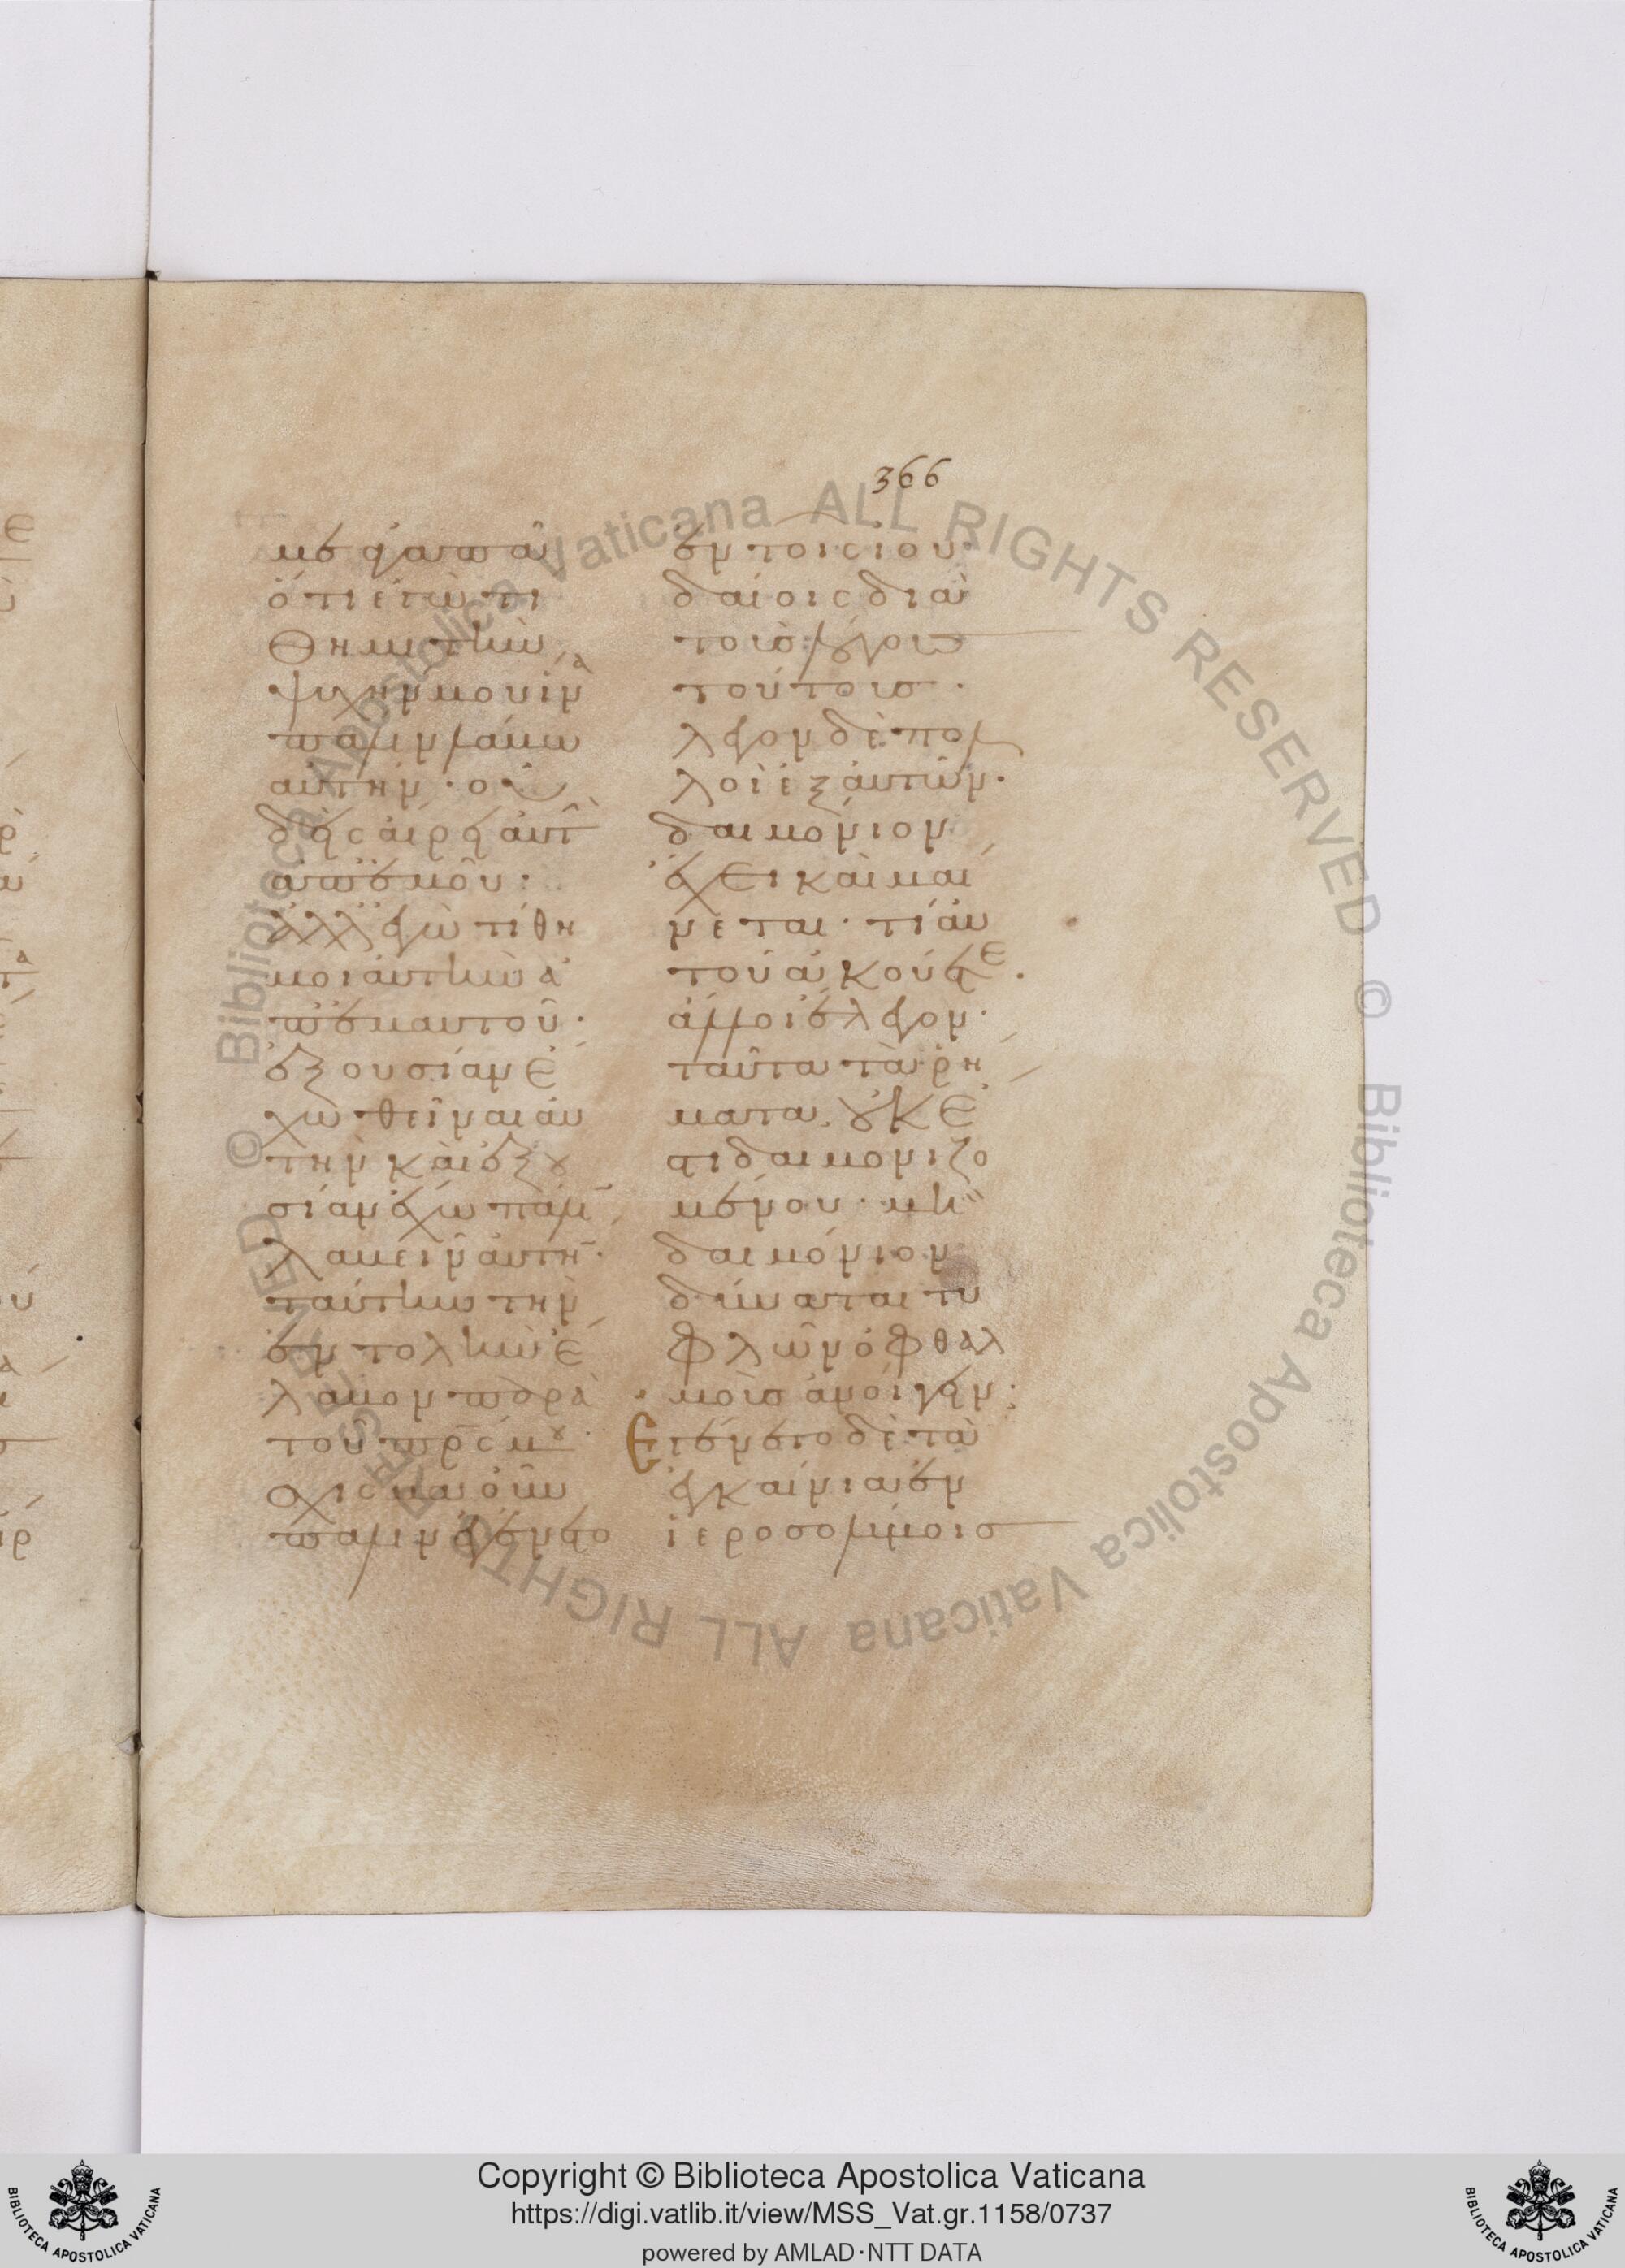 366
με ἀγαπᾷ
ὅτι ἐγὼ τι
θημι τὴν
ψυχήν μου ἵνα
πάλιν λάβω
αὐτήν. οὐ
δεὶς αἴρει αὐτ(ὴν)
ἀπ' ἐμοῦ·
ἀλλ' ἐγὼ τίθη
μι αὐτὴν ἀ
π' ἐμαυτοῦ·
ἐξουσίαν ἔ
χω θεῖναι αὐ
τὴν καὶ ἐξου
σίαν ἔχω πάλιν
λαβεῖν αὐτή(ν)·
ταύτην τὴν
ἐντολὴν ἔ
λαβον παρὰ
τοῦ πρς μου·
σχίσμα οὖν
πάλιν ἐγένετο
ἐν τοῖς ἰου
δαίοις διὰ
τοὺς λόγους
τούτους·
ἔλεγον δὲ πολ
λοὶ ἐξ αὐτῶν·
δαιμόνιον
ἔχει καὶ μαί
νεται· τί αὐ
τοῦ ἀκούετε·
ἄλλοι ἔλεγον·
ταῦτα τὰ ῥή
ματα οὐκ ἔ
στι δαιμονιζο
μένου· μὴ
δαιμόνιον
δύναται τυ
φλῶν ὀφθαλ
μοὺς ἀνοίγειν·
Ἐγένετο δὲ τὰ
ἐγκαίνια ἐν
ἱεροσολύμοις
Copyright © Biblioteca Apostolica Vaticana
https://digi.vatlib.it/view/MSS_Vat.gr.1158/0737
powered by AMLAD·NTT DATA
© Biblioteca Apostolica Vaticana ALL RIGHTS RESERVED © Biblioteca Apostolica Vaticana ALL RIGHTS RESERVED
BIBLIOTECA APOSTOLICA VATICANA
BIBLIOTECA APOSTOLICA VATICANA